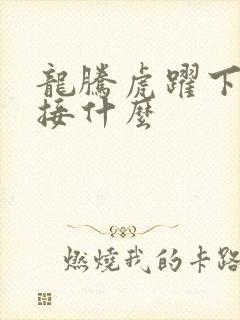 龍騰虎躍下
接什麼
燃燒我的卡路